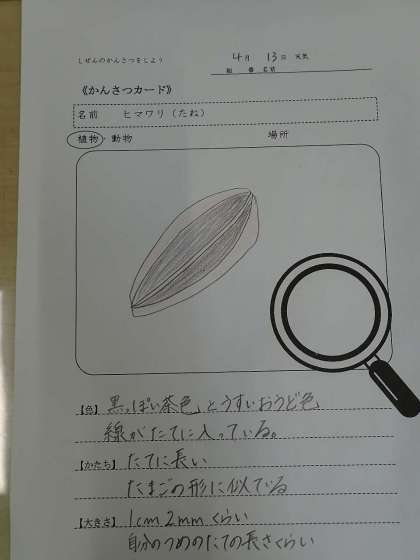 しぜんのかんさつをしよう
4月 13日 天気
組 番 名前
《かんさつカード》
名前 ヒマワリ（たね）
植物・動物 場所
【色】黒っぽい茶色とうすいおうど色
線がたてに入っている。
【かたち】たてに長い
たまごの形に似ている
【大きさ】1cm 2mmくらい
自分のつめのたての長さくらい